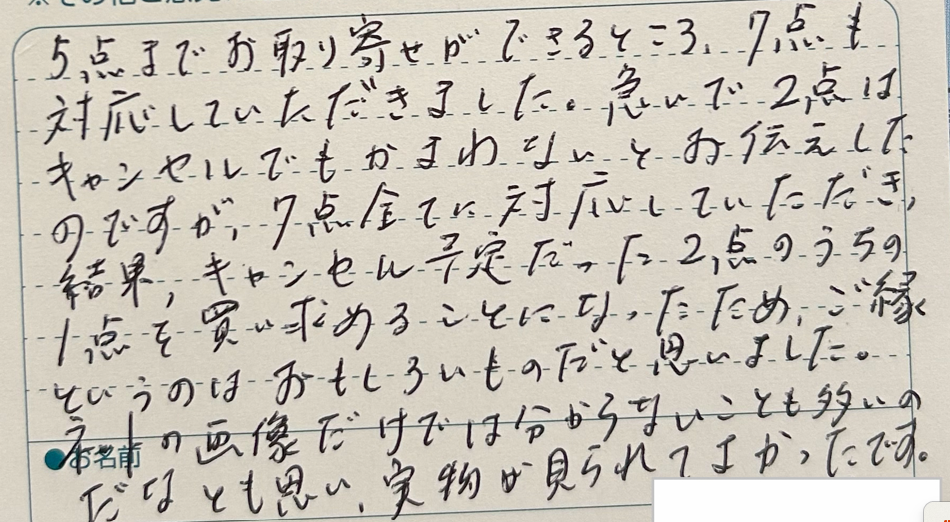 5点までお取り寄せができるところ、7点も
対応していただきました。急いで2点は
キャンセルでもかまわないとお伝えした
のですが、7点全てに対応していただき、
結果、キャンセル予定だった2点のうちの
1点を買い求めることになったため、ご縁
というのはおもしろいものだと思いました。
ネットの画像だけでは分からないことも多いの
●お名前
だなとも思い、実物が見られてよかったです。